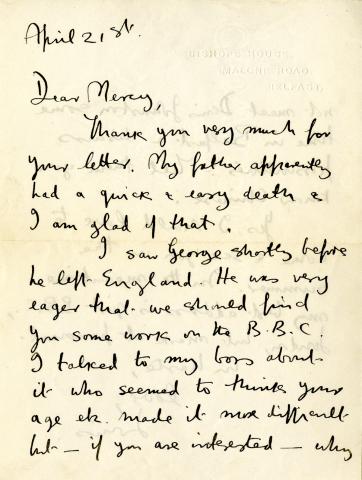 April 21st.
BISHOPS HOUSE,
MALONE ROAD,
BELFAST.
Dear Mercy,
Thank you very much for
your letter. My father apparently
had a quick & easy death &
I am glad of that.
I saw George shortly before
he left England. He was very
eager that we should find
you some work on the B.B.C.
I talked to my boss about
it who seemed to think your
age etc. made it more difficult
but — if you are interested — why